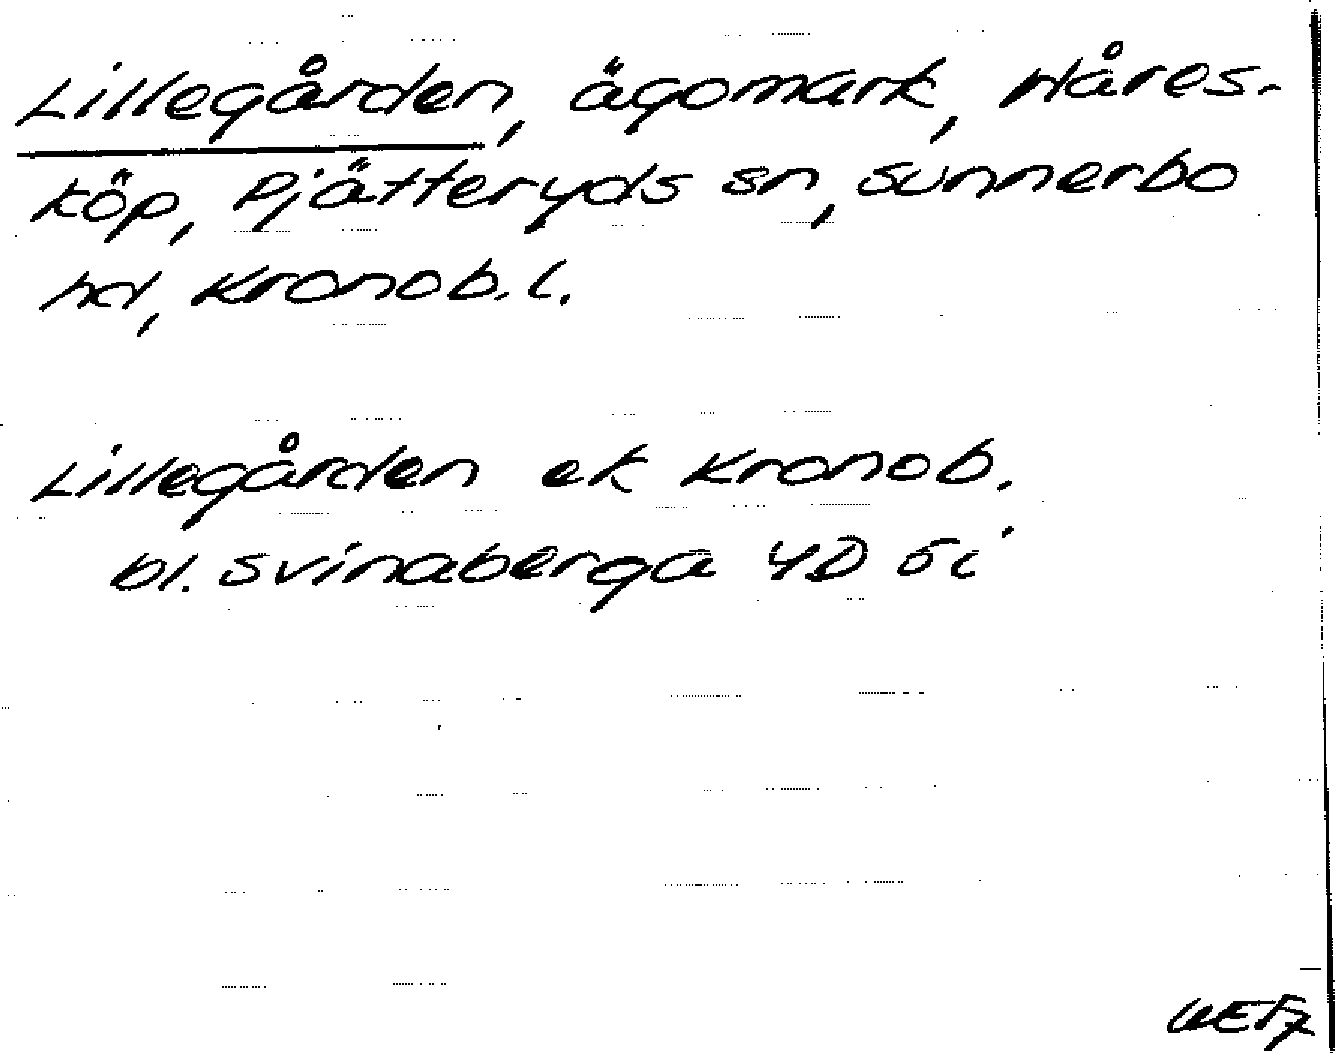 Lillegården, ägomark, Håres-
köp, Pjätteryds sn, Sunnerbo
hd, Kronob. l.
Lillegården ek Kronob.
bl. Svinaberga 4D 5i